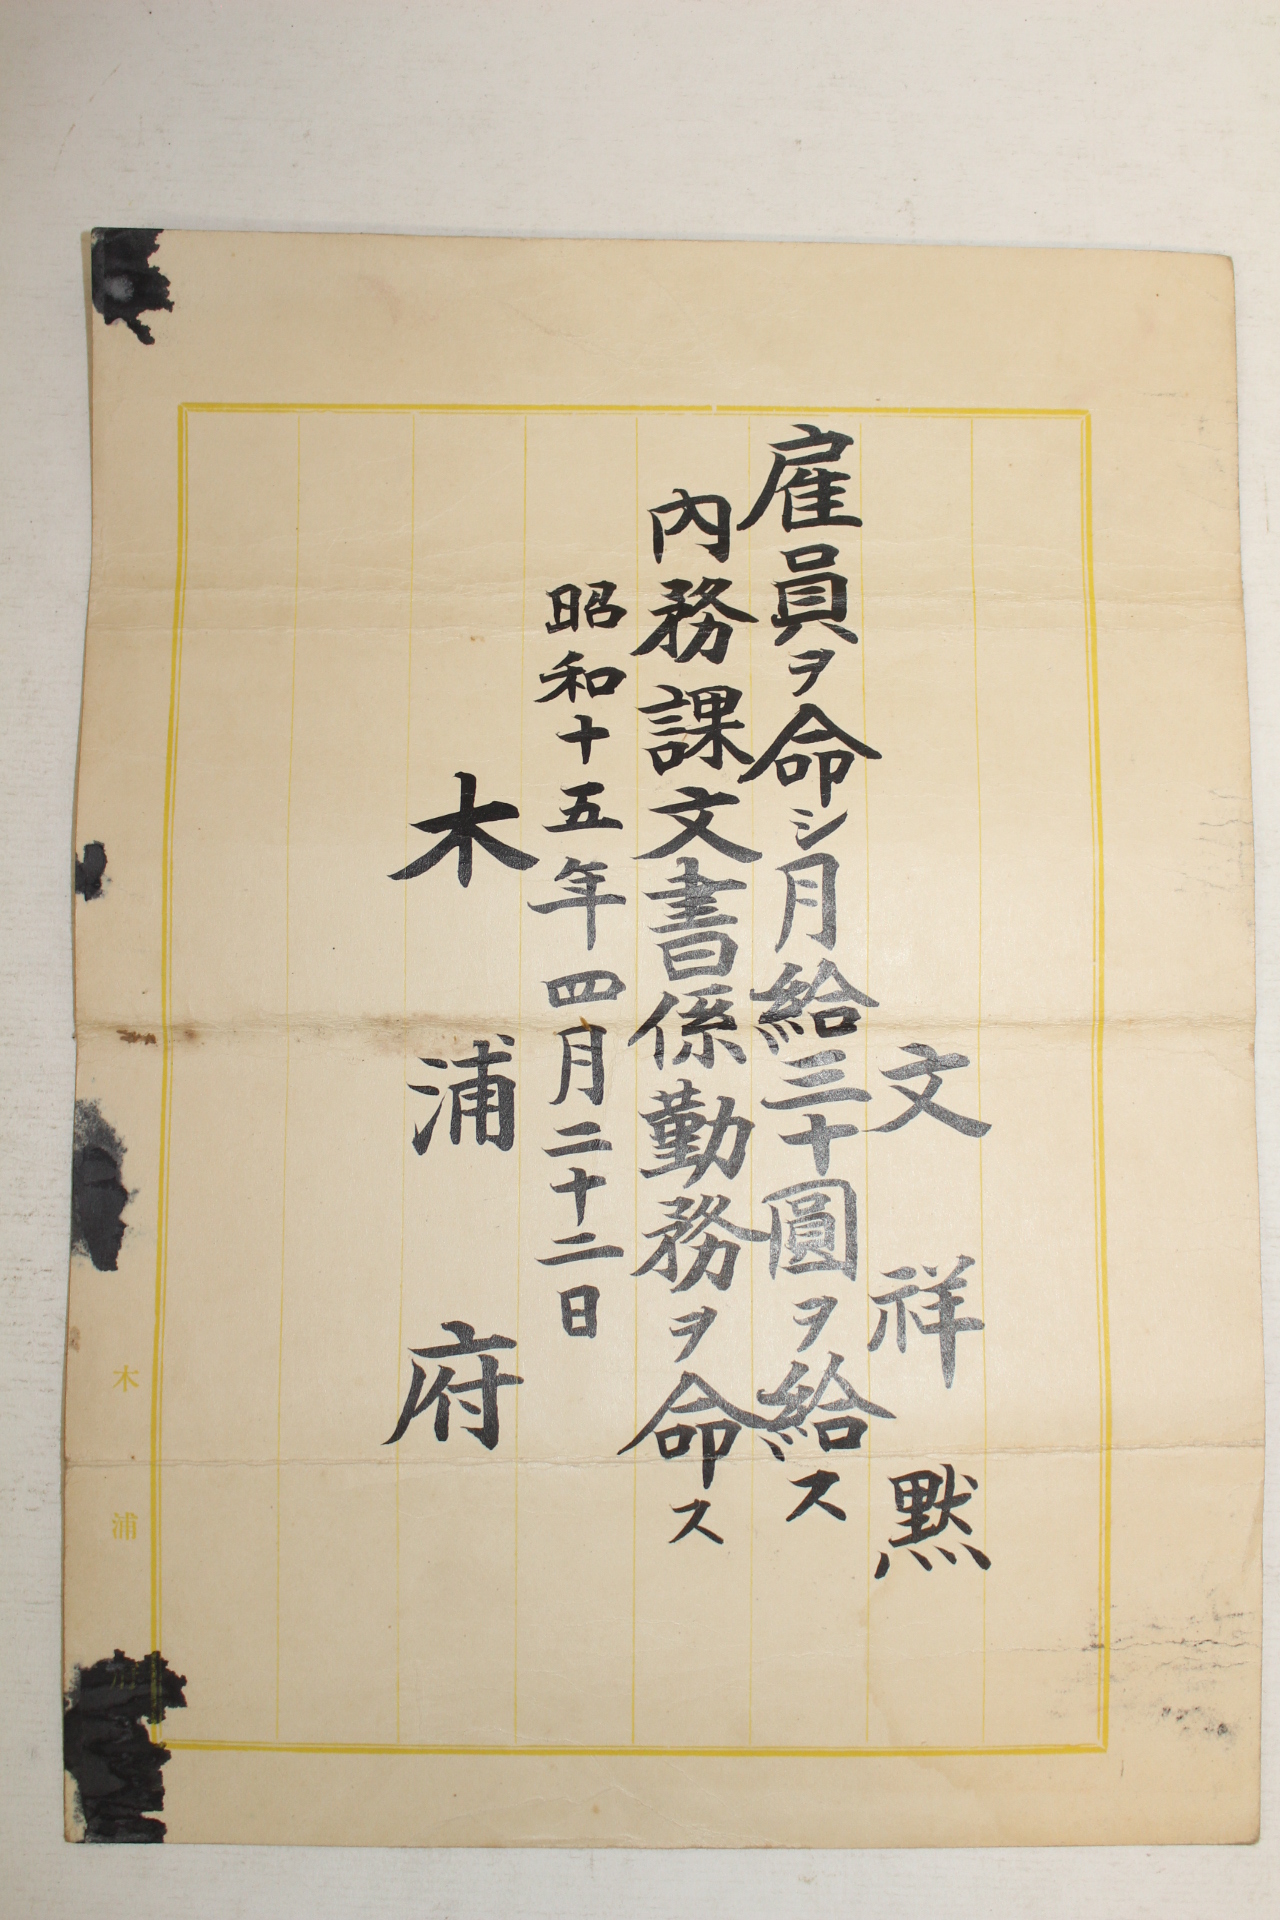 文祥默
雇員ヲ命シ月給三十圓ヲ給ス
內務課文書係勤務ヲ命ス
昭和十五年四月二十二日
木浦府
木浦府